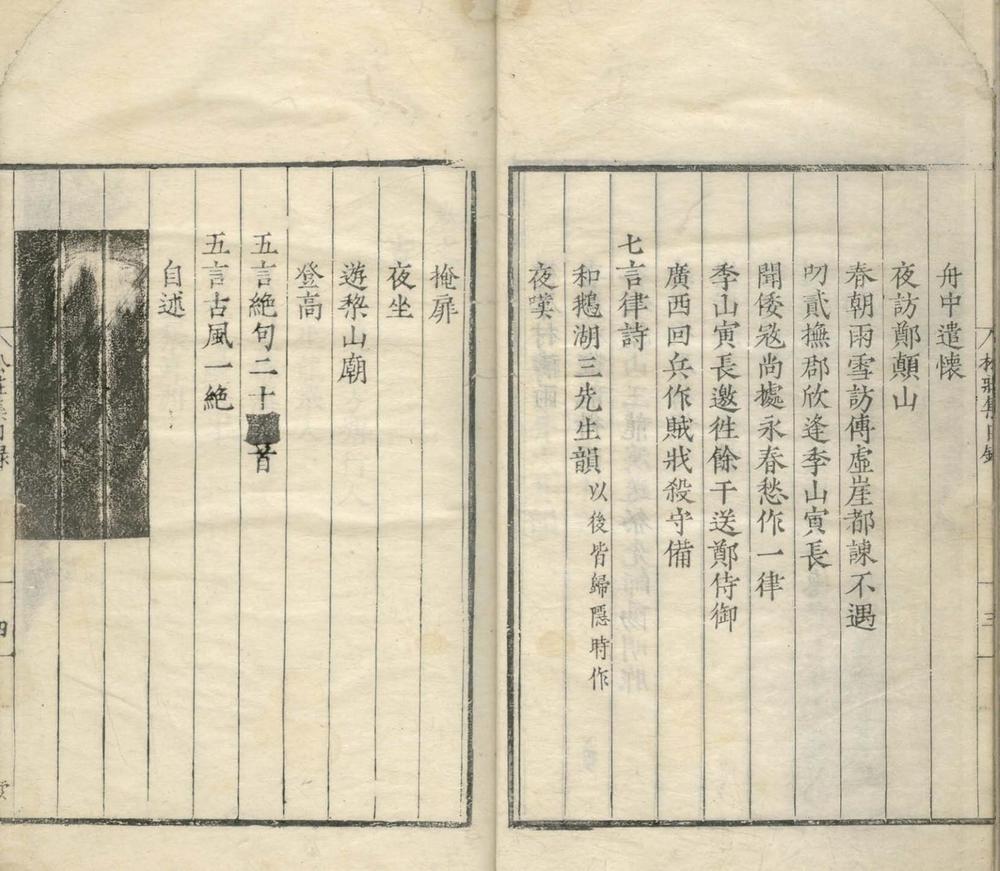 舟中遣懷
夜訪鄭顛山
春朝雨雪訪傅虛崖都諫不遇
叨貳撫郡欣逢李山寅長
聞倭寇尚據永春愁作一律
季山寅長邀徃餘干送鄭侍御
廣西回兵作賊戕殺守備
七言律詩
和鵝湖三先生韻 以後皆歸隱時作
夜嘆
三
掩扉
夜坐
遊棃山廟
登高
五言絶句二十 首
五言古風一絶
自述
四